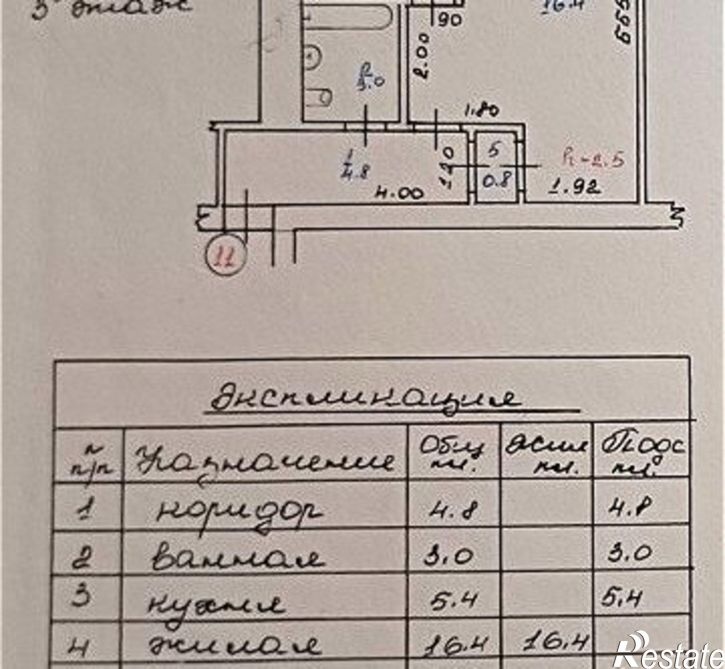 3 этаж
16.4
90
2.00
5.55
2
3.0
1.80
1
4.8
1.20
5
0.8
h-2.5
4.00
1.92
11
Экспликация
№ п/п Назначение Общ пл. Жил пл. Подс пл.
1 коридор 4.8 4.8
2 ванная 3.0 3.0
3 кухня 5.4 5.4
4 жилая 16.4 16.4
Restate